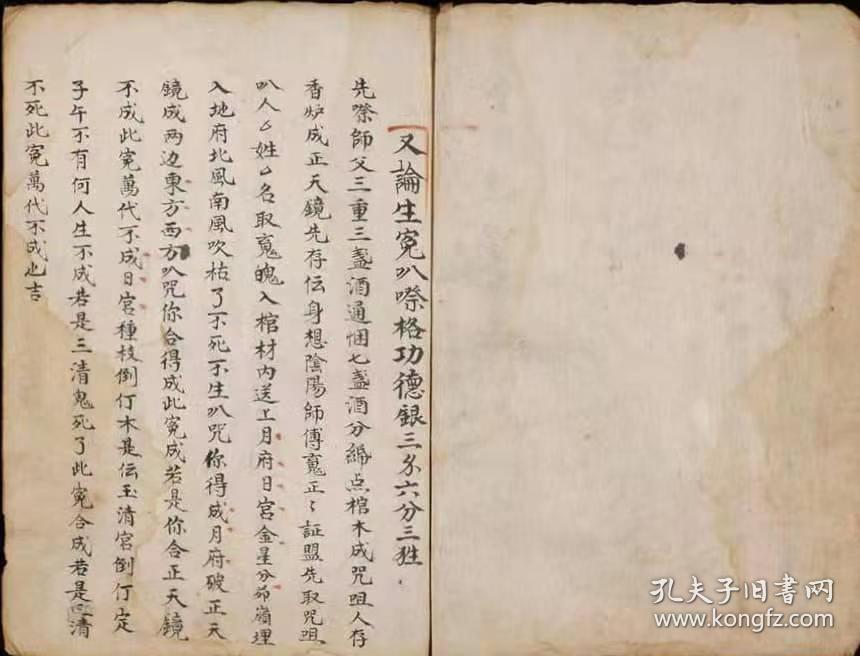 又論生冤㕤嚓格功德銀三分六分三牲
先嚓師父三重三盞酒通悃七盞酒分䋎点棺木成咒咀人存
香炉成正天鏡先存伝身想陰陽師傅䰟正〻証盟先取咒咀
㕤人厶姓厶名取䰟魄入棺材內送上月府日宮金星分卯嶺埋
入地府北風南風吹枯了不死不生㕤咒你得成月府破正天
鏡成两边東方西方㕤咒你合得成此冤成若是你合正天鏡
不成此冤萬代不成日宮種枝倒仃木是伝玉清宮倒仃定
子午不有何人生不成若是三清鬼死了此冤合成若是清
不死此冤萬代不成也吉
孔夫子旧書网
www.kongfz.com